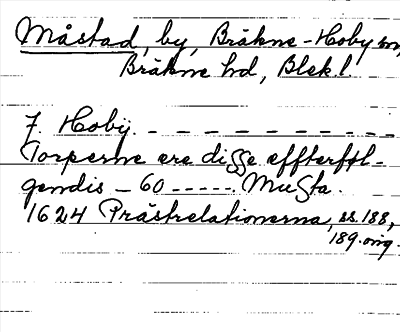 Måstad, by, Bräkne-Hoby sn,
Bräkne hd, Blek. l.
J. Hobÿ. – – – – – – – –
Torperne ere disse effterføl-
gendis – 60 ----- Mussta.
1624 Prästrelationerna, ss. 188,
189. orig.